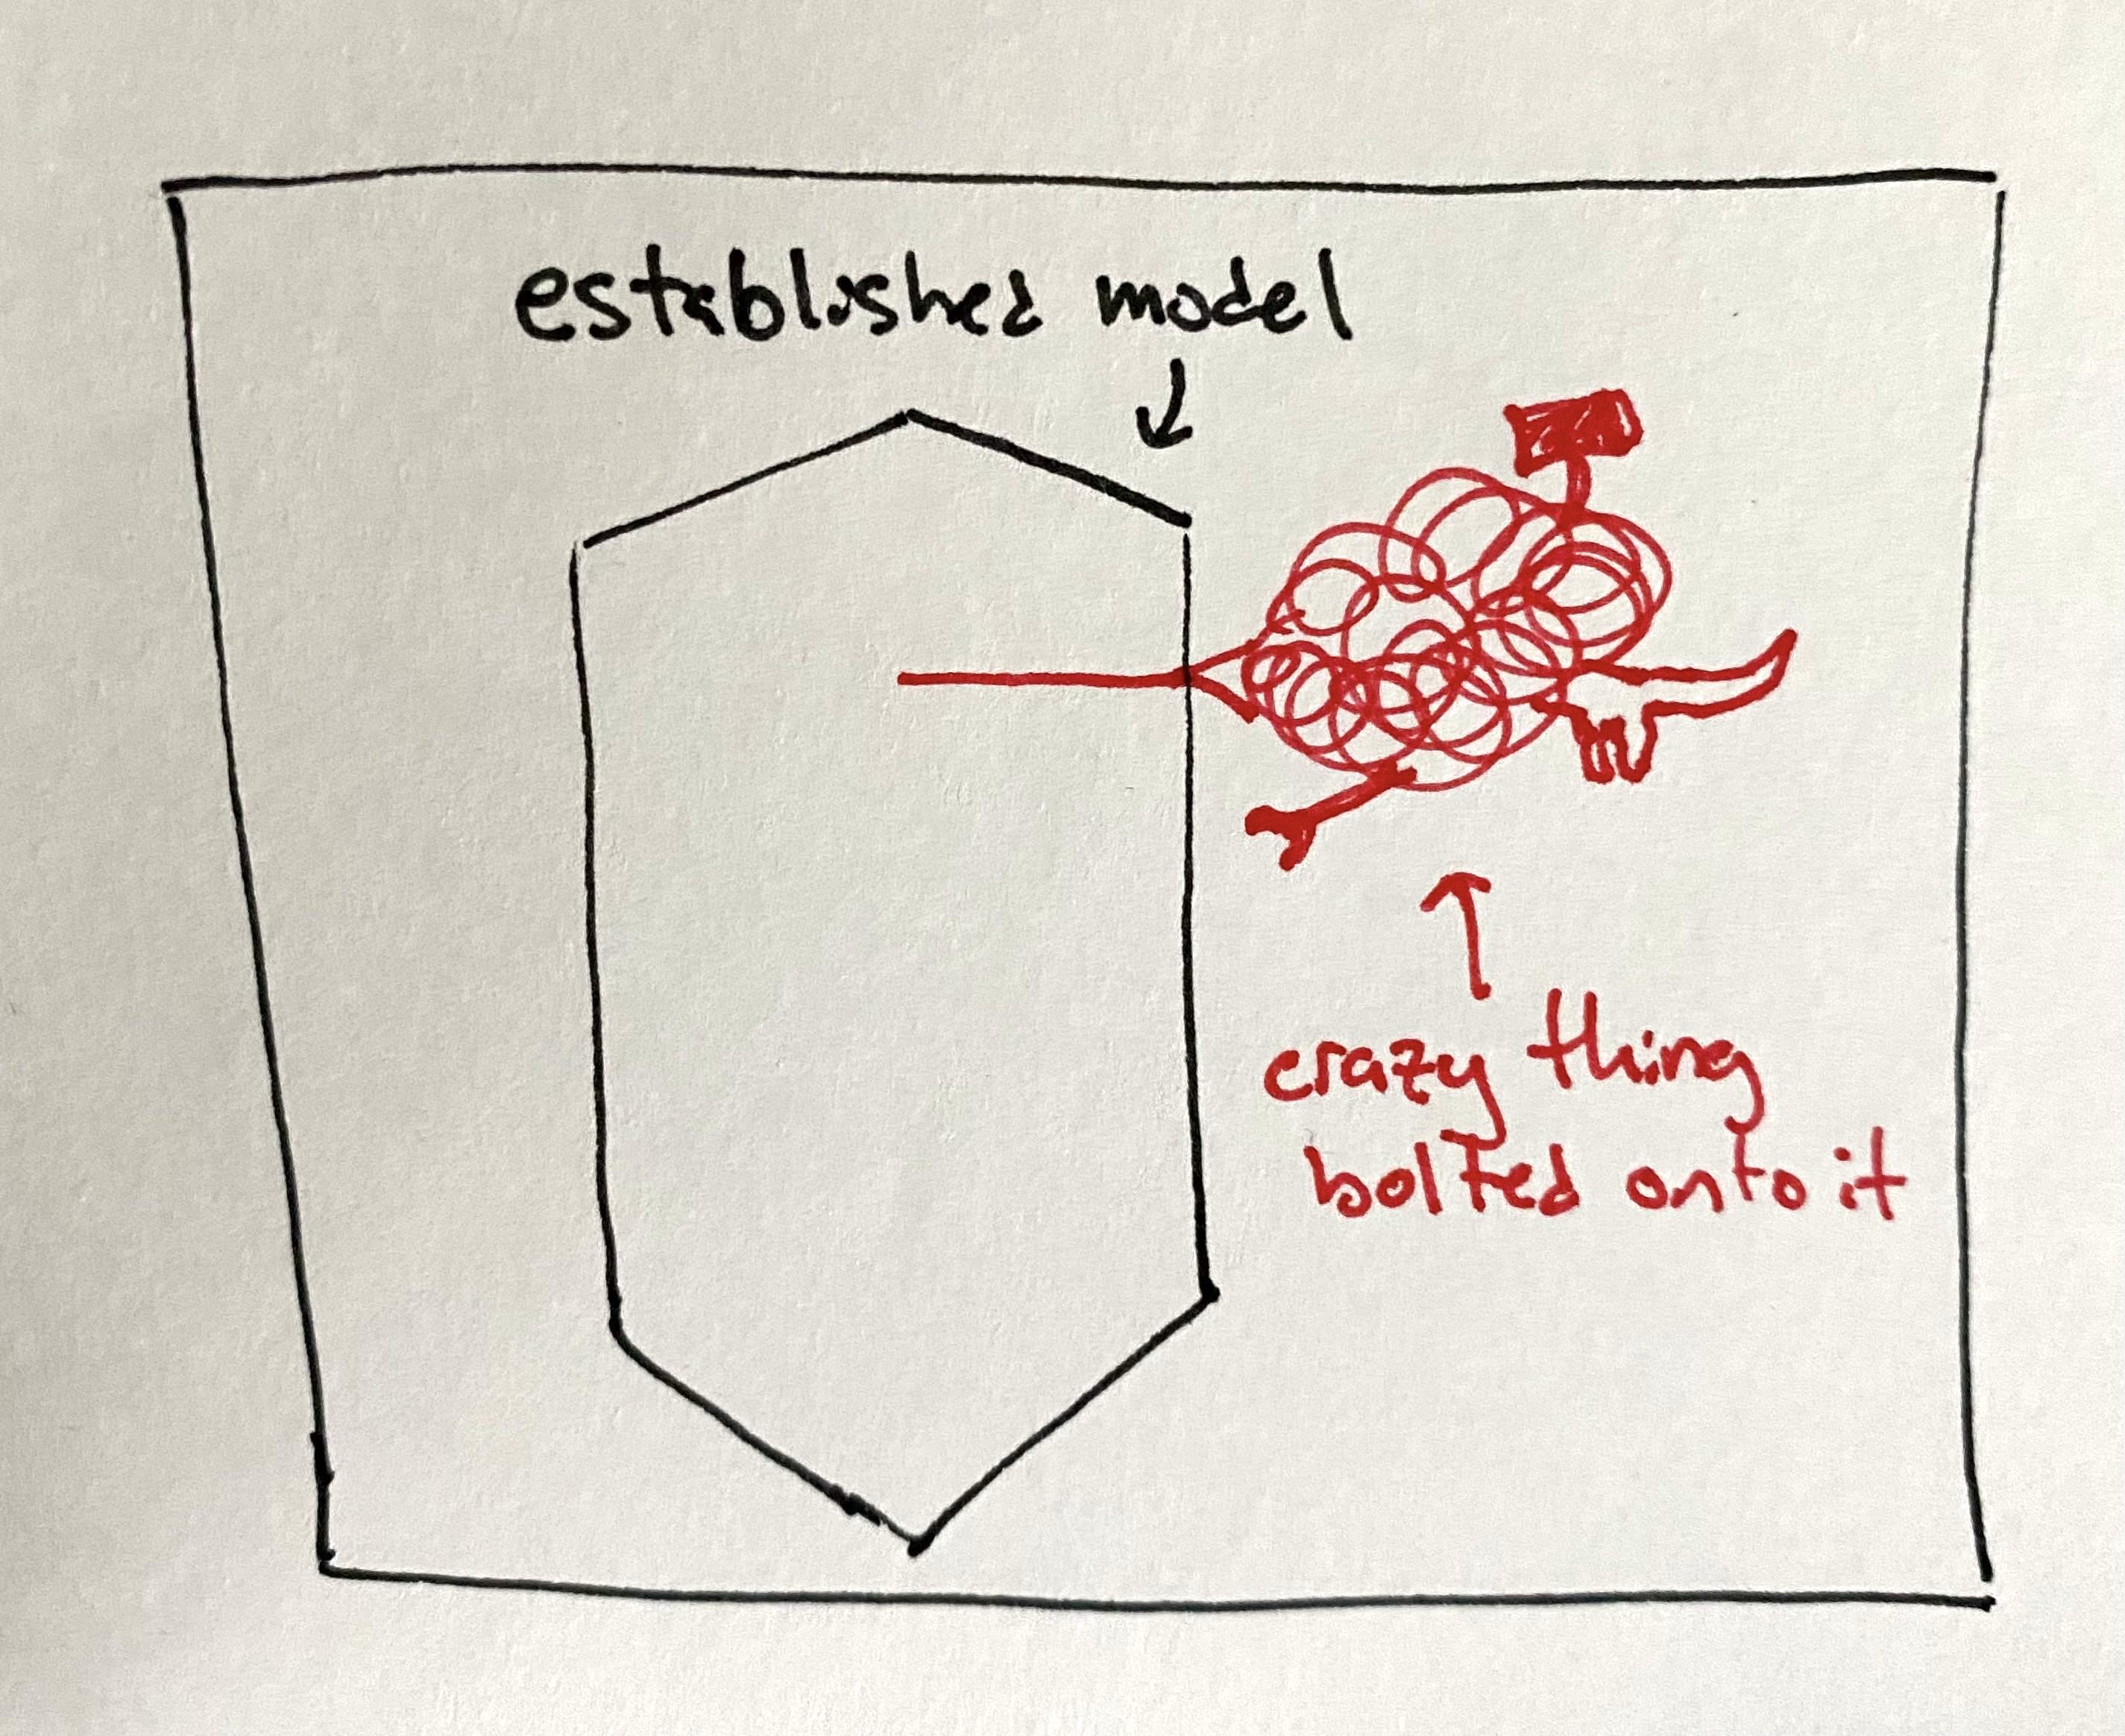 established model
crazy thing
bolted onto it